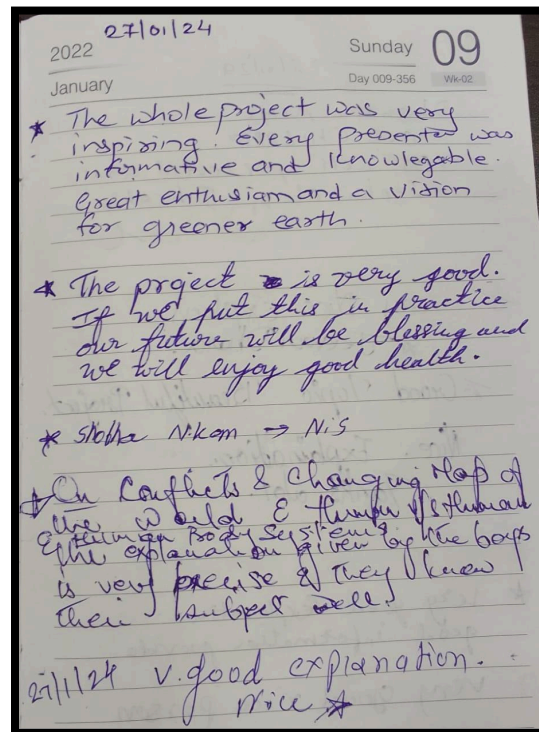 27/01/24
2022
Sunday 09
January
Day 009-356 Wk-02
* The whole project was very
inspiring. Every Presenter was
informative and Knowlegable.
Great enthusiam and a vision
for greener earth.
* The project is very good.
If we put this in practice
our future will be blessing and
we will enjoy good health.
* Shobha Nikam → NiS
* On Conflicts & Changing Map of
the World & Human Vs Human
& Human Body Systems
the explanation given by the boys
is very precise & They know
their subject well.
27/1/24 v. good explanation.
Nice